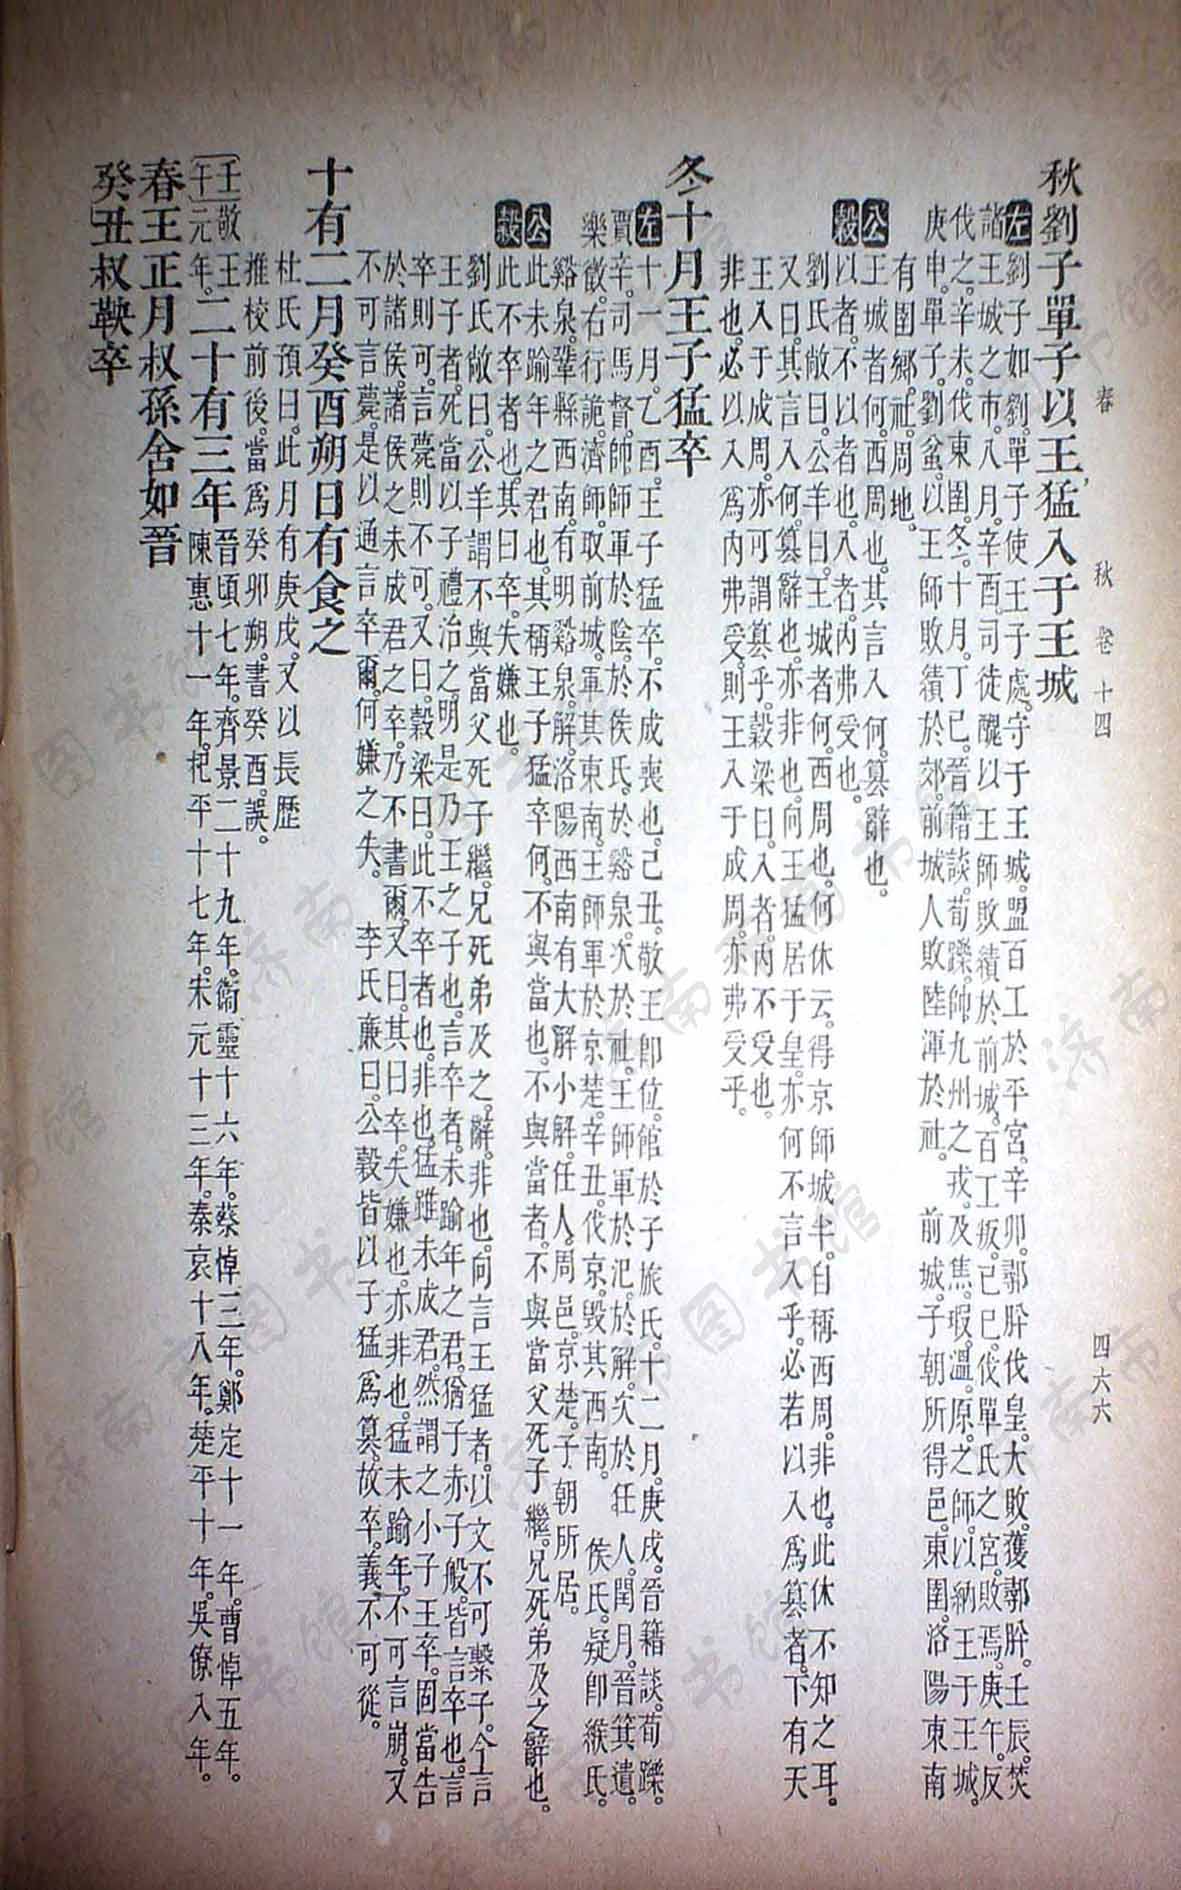 春　秋　卷十四　四六六
秋劉子單子以王猛入于王城
左劉子如劉單子使王子處守于王城盟百工於平宮辛卯鄩肸伐皇大敗獲鄩肸壬辰焚
諸王城之市八月辛酉司徒醜以王師敗績於前城百工叛己巳伐單氏之宮敗焉庚午反
伐之辛未伐東圉冬十月丁巳晉籍談荀躒帥九州之戎及焦瑕溫原之師以納王于王城
庚申單子劉蚠以王師敗績於郊前城人敗陸渾於社　前城子朝所得邑東圉洛陽東南
有圉鄉社周地
公王城者何西周也其言入何篡辭也
穀以者不以者也入者內弗受也
劉氏敞曰公羊曰王城者何西周也何休云得京師城半自稱西周非也此休不知之耳
又曰其言入何篡辭也亦非也向王猛居于皇亦何不言入乎必若以入為篡者下有天
王入于成周亦可謂篡乎穀梁曰入者內不受也
非也必以入為內弗受則王入于成周亦弗受乎
冬十月王子猛卒
左十一月乙酉王子猛卒不成喪也己丑敬王即位館於子旅氏十二月庚戌晉籍談荀躒
賈辛司馬督帥師軍於陰於侯氏於谿泉次於社王師軍於氾於解次於任人閏月晉箕遺
樂徵右行詭濟師取前城軍其東南王師軍於京楚辛丑伐京毀其西南　侯氏疑即緱氏
谿泉鞏縣西南有明谿泉解洛陽西南有大解小解任人周邑京楚子朝所居
公此未踰年之君也其稱王子猛卒何不與當也不與當者不與當父死子繼兄死弟及之辭也
穀此不卒者也其曰卒失嫌也
劉氏敞曰公羊謂不與當父死子繼兄死弟及之辭非也向言王猛者以文不可繫子今言
王子者死當以子禮治之明是乃王之子也言卒者未踰年之君猶子赤子般皆言卒也言
卒則可言薨則不可又曰穀梁曰此不卒者也非也猛雖未成君然謂之小子王卒固當告
於諸侯諸侯之未成君之卒乃不書爾又曰其曰卒失嫌也亦非也猛未踰年不可言崩又
不可言薨是以通言卒爾何嫌之失　李氏廉曰公穀皆以子猛為篡故卒義不可從
十有二月癸酉朔日有食之
杜氏預曰此月有庚戌又以長歷
推校前後當為癸卯朔書癸酉誤
〔壬午〕敬王元年二十有三年晉頃七年齊景二十九年衛靈十六年蔡悼三年鄭定十一年曹悼五年
陳惠十一年杞平十七年宋元十三年秦哀十八年楚平十年吳僚八年
春王正月叔孫舍如晉
癸丑叔鞅卒